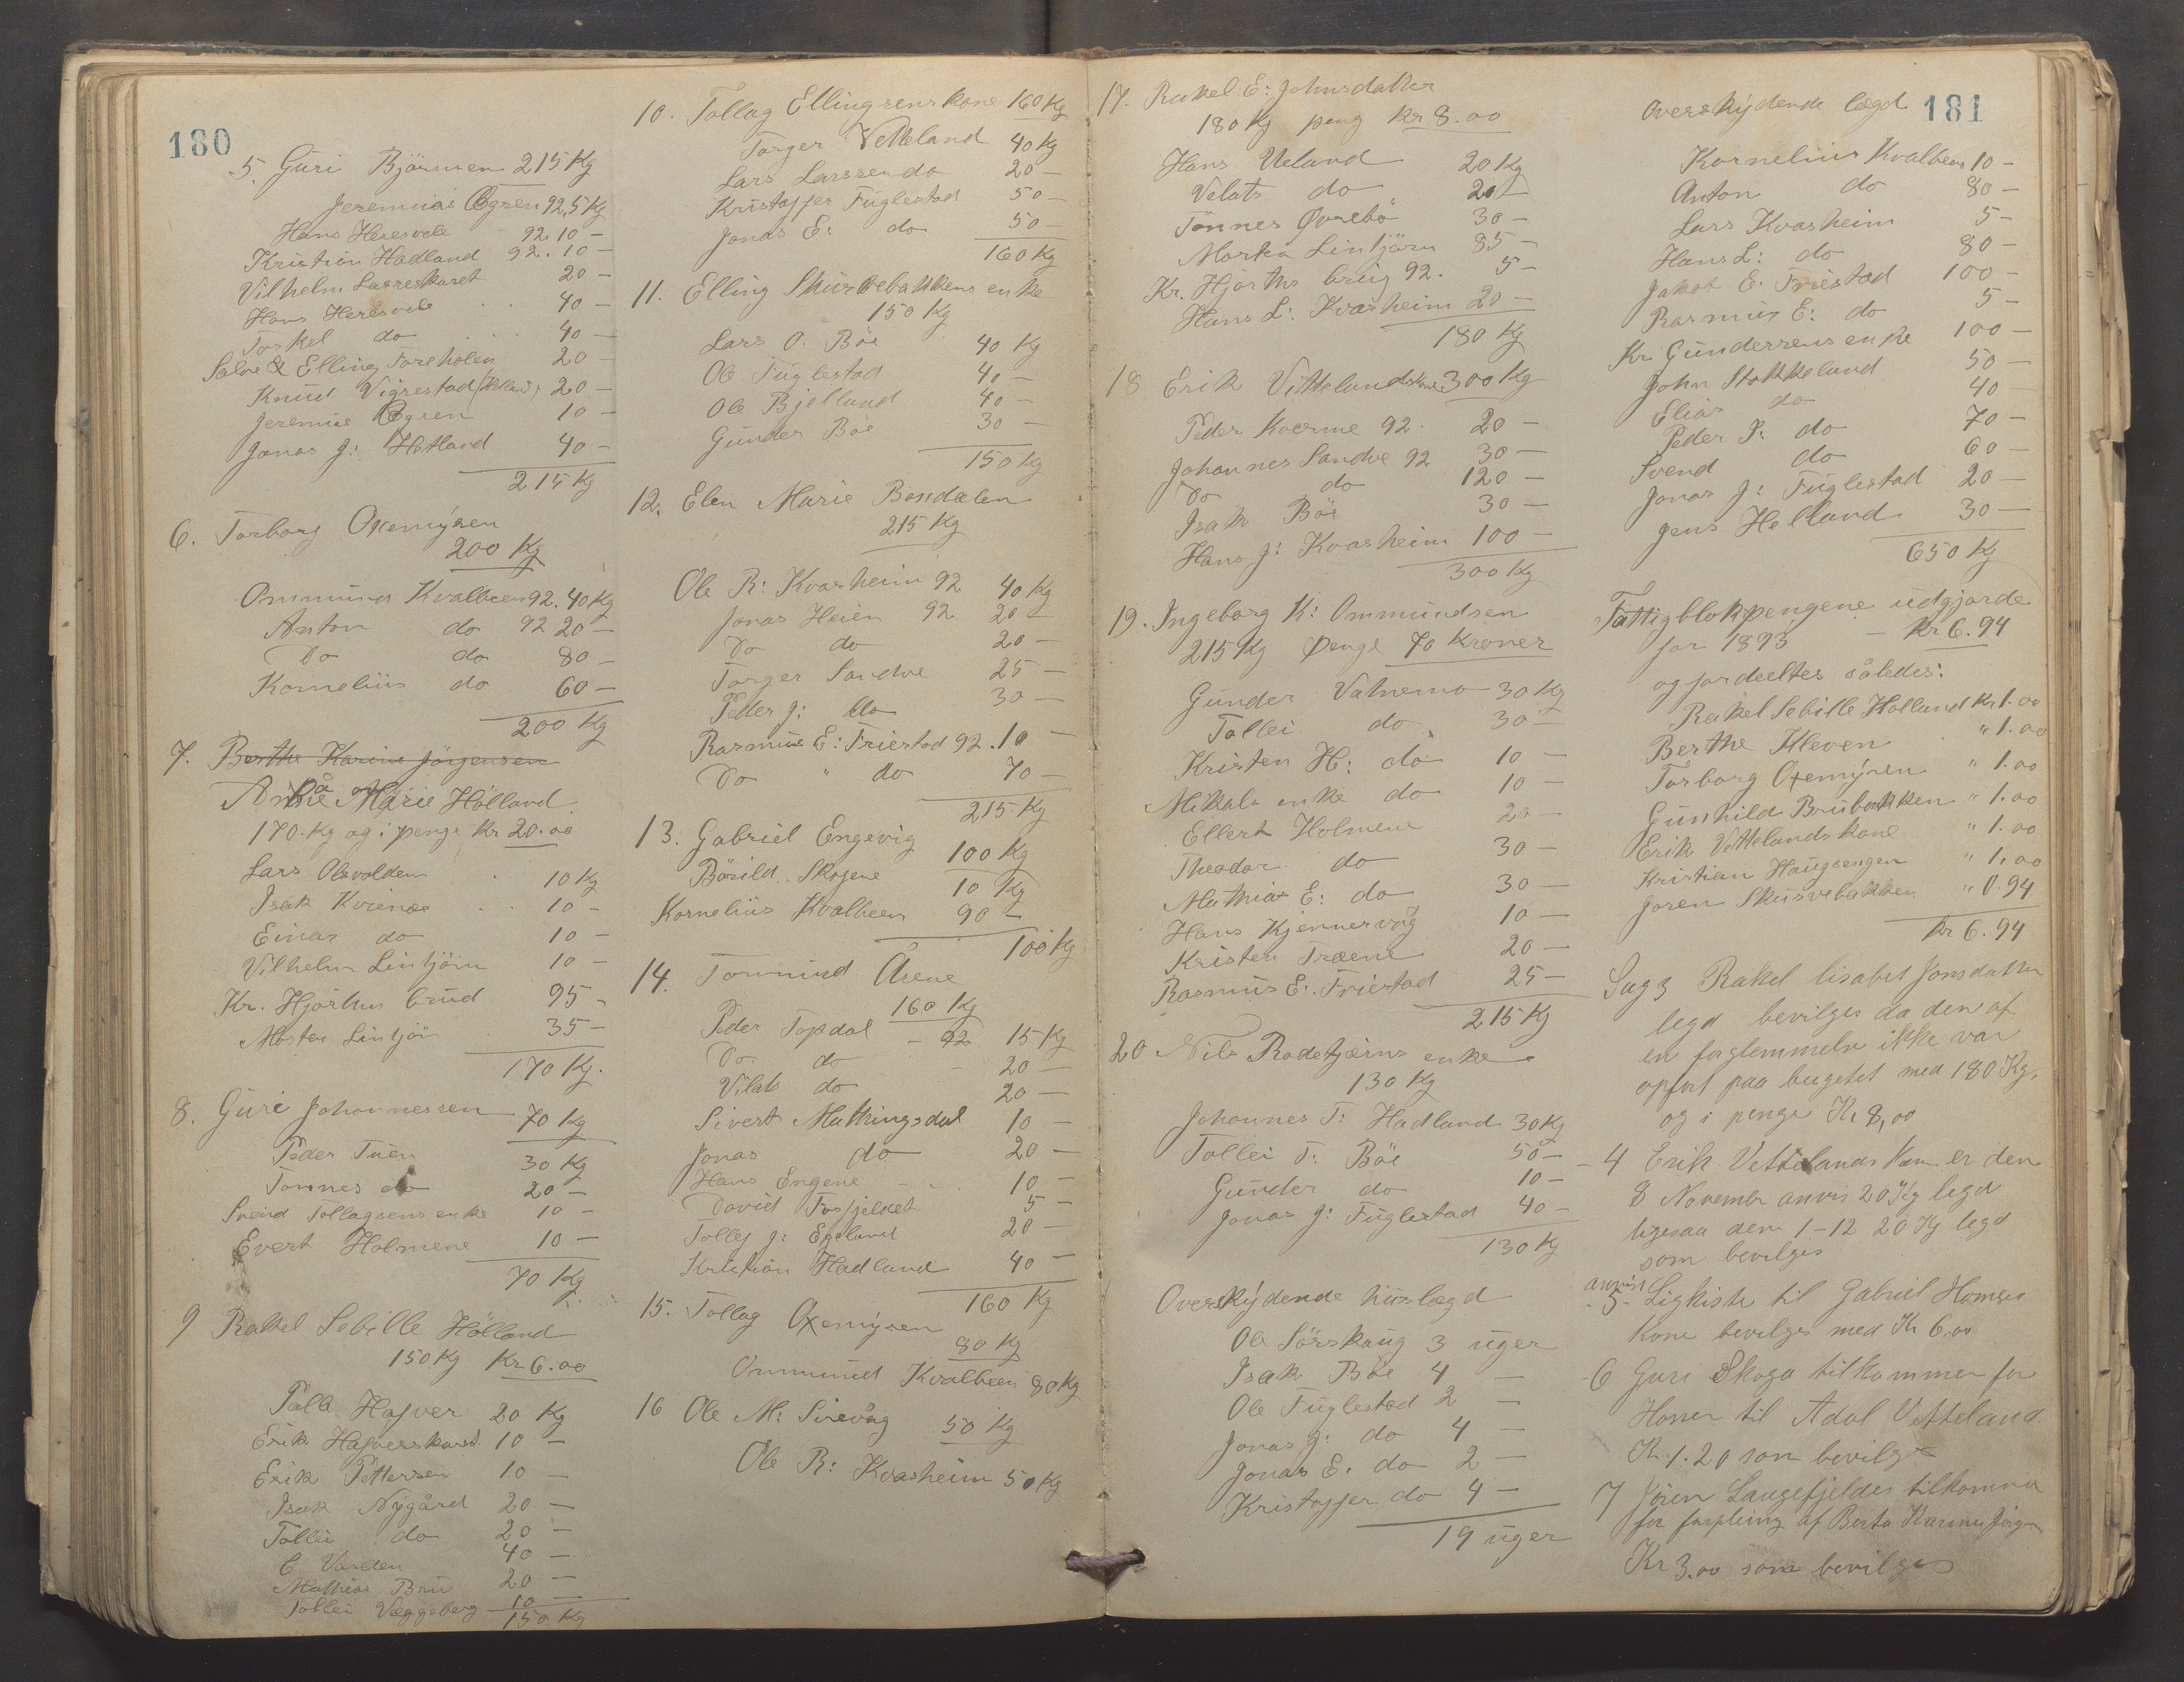 180
5. Guri Bjärumen 215 Kg
Jeremias Ögren 92,5 Kg
Hans Heresvele 92 10 —
Kristian Hadland 92. 10 —
Vilhelm Lasreskaret 20 —
Hans Heresvele 40 —
Torkel do 40 —
Salve & Elling Toreholen 20 —
Knud Vigrestad (Hetland) 20 —
Jeremie Ögren 10 —
Jonas J: Hetland 40 —
215 Kg
6. Torborg Oxemyren
200 Kg
Ommund Kvalbeen 92. 40 Kg
Anton do 92 20 —
Do do 80 —
Kornelius do 60 —
200 Kg
7. Berthe Karine Jörgensen
Anne Marie Hölland
170. Kg og i penge Kr 20.00
Lars Olsvolden 10 Kg
Isak Kvienas 10 —
Einar do 10 —
Vilhelm Lintjörn 10 —
Kr. Hjorthus brud 95 —
Morten Lintjörn 35 —
170 Kg.
8. Guri Johannessen 70 Kg
Peder Tuen 30 Kg
Tonnes do 20 —
Svend Tollagsens enke 10 —
Evert Holmene 10 —
70 Kg
9 Rakel Sebille Hölland
150 Kg Kr 6.00
Palle Hafver 20 Kg
Erik Hafverskaret 10 —
Erik Pettersen 10 —
Isak Nygård 20 —
Tollei do 20 —
E Varden 40 —
Mathias Bru 20 —
Tollei Væggeberg 10 —
150 Kg
10. Tollag Ellingsens kone 160 Kg
Torger Vetteland 40 Kg
Lars Larssen do 20 —
Kristoffer Fuglestad 50 —
Jonas E: do 50 —
160 Kg
11. Elling Skurvebakkens enke
150 Kg
Lars O. Böe 40 Kg
Ole Fuglestad 40 —
Ole Bjelland 40 —
Gunder Böe 30 —
150 Kg
12. Elen Marie Bondalen
215 Kg
Ole R: Kvasheim 92 40 Kg
Jonas Heien 92 20 —
Do do 20 —
Torger Sandve 25 —
Peder J: do 30 —
Rasmus E: Friestad 92. 10 —
Do " do 70 —
215 Kg
13. Gabriel Engevig
100 Kg
Börild Skogene 10 Kg
Kornelius Kvalbeen 90 —
100 Kg
14. Tormund Åsene
160 Kg
Peder Topdal — 92 15 Kg
Do do — 20 —
Vilat do 20 —
Sivert Mathingsdal 10 —
Jonas do 20 —
Hans Engene 10 —
David Fosfjeldet 5 —
Tolley J: Egeland 20 —
Kristian Hadland 40 —
160 Kg
15. Tollag Oxemyren
80 Kg
Ommund Kvalbeen 80 Kg
16 Ole M: Sirevåg 50 Kg
Ole R: Kvasheim 50 Kg
17. Rakel E: Johnsdatter
180 Kg peng Kr 8.00
Hans Ueland 20 Kg
Velats do 20 —
Tönnes Øvrebö 30 —
Morten Lintjörn 85 —
Kr. Hjorths brug 92. 5 —
Hans L: Kvasheim 20 —
180 Kg
18 Erik Vettelands kone 300 Kg
Peder Kverme 92. 20 —
Johannes Sandve 92 30 —
Do do 120 —
Isak Böe 30 —
Hans J: Kvasheim 100 —
300 Kg
19. Ingeborg K: Ommundsen
215 Kg Penge 70 Kroner
Gunder Vatnemo 30 Kg
Tallei do 30 —
Kristen H: do 10 —
Mikals enke do 10 —
Ellert Holmene 20 —
Theodor do 30 —
Mathias E: do 30 —
Hans Kjennervåg 10 —
Kristen Træene 20 —
Rasmus E: Friestad 25 —
215 Kg
20 Nils Rodetjærns enke
130 Kg
Johannes T: Hadland 30 Kg
Tollei T: Böe 50 —
Gunder do 10 —
Jonas J: Fuglestad 40 —
130 Kg
Overskydende huslægd
Ole Sörskaug 3 uger
Isak Böe 4 —
Ole Fuglestad 2 —
Jonas J: do 4 —
Jonas E. do 2 —
Kristoffer do 4 —
19 uger
Overskydende lægd 181
Kornelius Kvalbeen 10 —
Anton do 80 —
Lars Kvasheim 5 —
Hans L: do 80 —
Jakob E. Friestad 100 —
Rasmus E: do 5 —
Kr. Gundersens enke 100 —
John Stokkeland 50 —
Elias do 40
Peder J: do 70 —
Svend do 60 —
Jonas J: Fuglestad 20 —
Jens Helland 30 —
650 Kg
Fattigblokpengene udgjorde
for 1893 — Kr 6.94
og fordeeltes således:
Rakel Sebille Holland Kr 1.00
Berthe Kleven " 1.00
Torborg Oxemyren " 1.00
Gunhild Brubakken " 1.00
Erik Vettelands kone " 1.00
Kristian Haugsengen " 1.00
Joren Skurvebakken " 0.94
Kr 6.94
Sag 3 Rakel lisabet Jonsdatter
legd bevilges da den af
en forglemmelse ikke var
opført paa bugetet med 180 Kg.
og i penge Kr 8,00
- 4 Erik Vettelands kone er den
8 November anvis 20 Kg legd
ligesaa den 1-12 20 Kg legd
som bevilges
anvist
- 5 - Ligkiste til Gabriel Homses
Kone bevilges med Kr 6.00
- 6 Guri Skoga tilkommer for
til Adol Vetteland
Kr 1.20 som bevilges
7 Jören Laugefjeldes tilkommer
for forpleing af Berta Karine Jörg
Kr 3.00 som bevilges